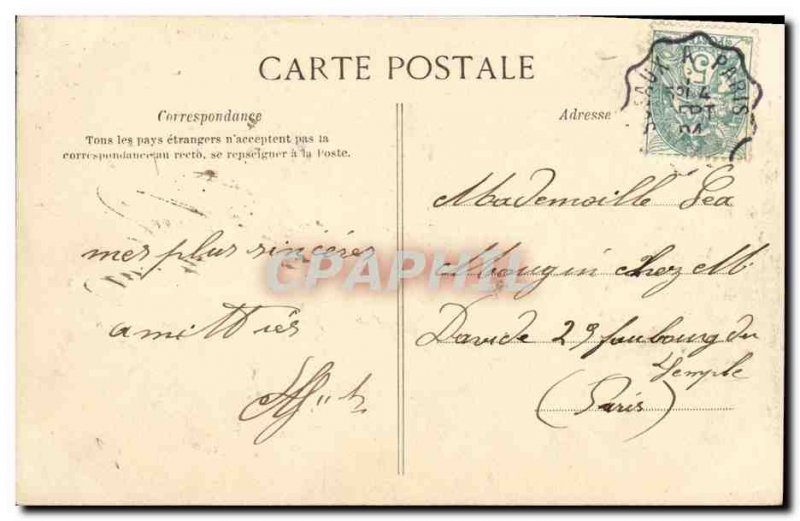 CARTE POSTALE
Correspondance
Tous les pays étrangers n'acceptent pas la
correspondance au recto, se renseigner à la Poste.
Adresse
A PARIS
5
4
SEPT
04
mes plus sincères
amittiés
Mademoiselle Lea
Mougin chez M.
Davide 29 faubourg du
Temple
(Paris)
CPAPHIL